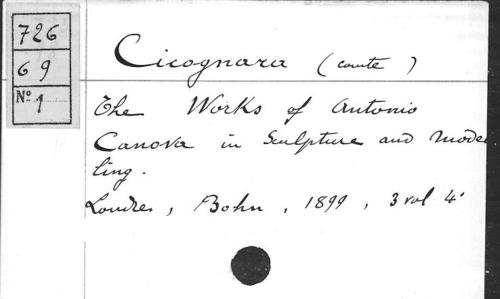 726
69
Nº 1
Cicognara (comte)
The Works of Antonio
Canova in Sculpture and Mode
ling.
Londres, Bohn, 1899, 3 vol 4°